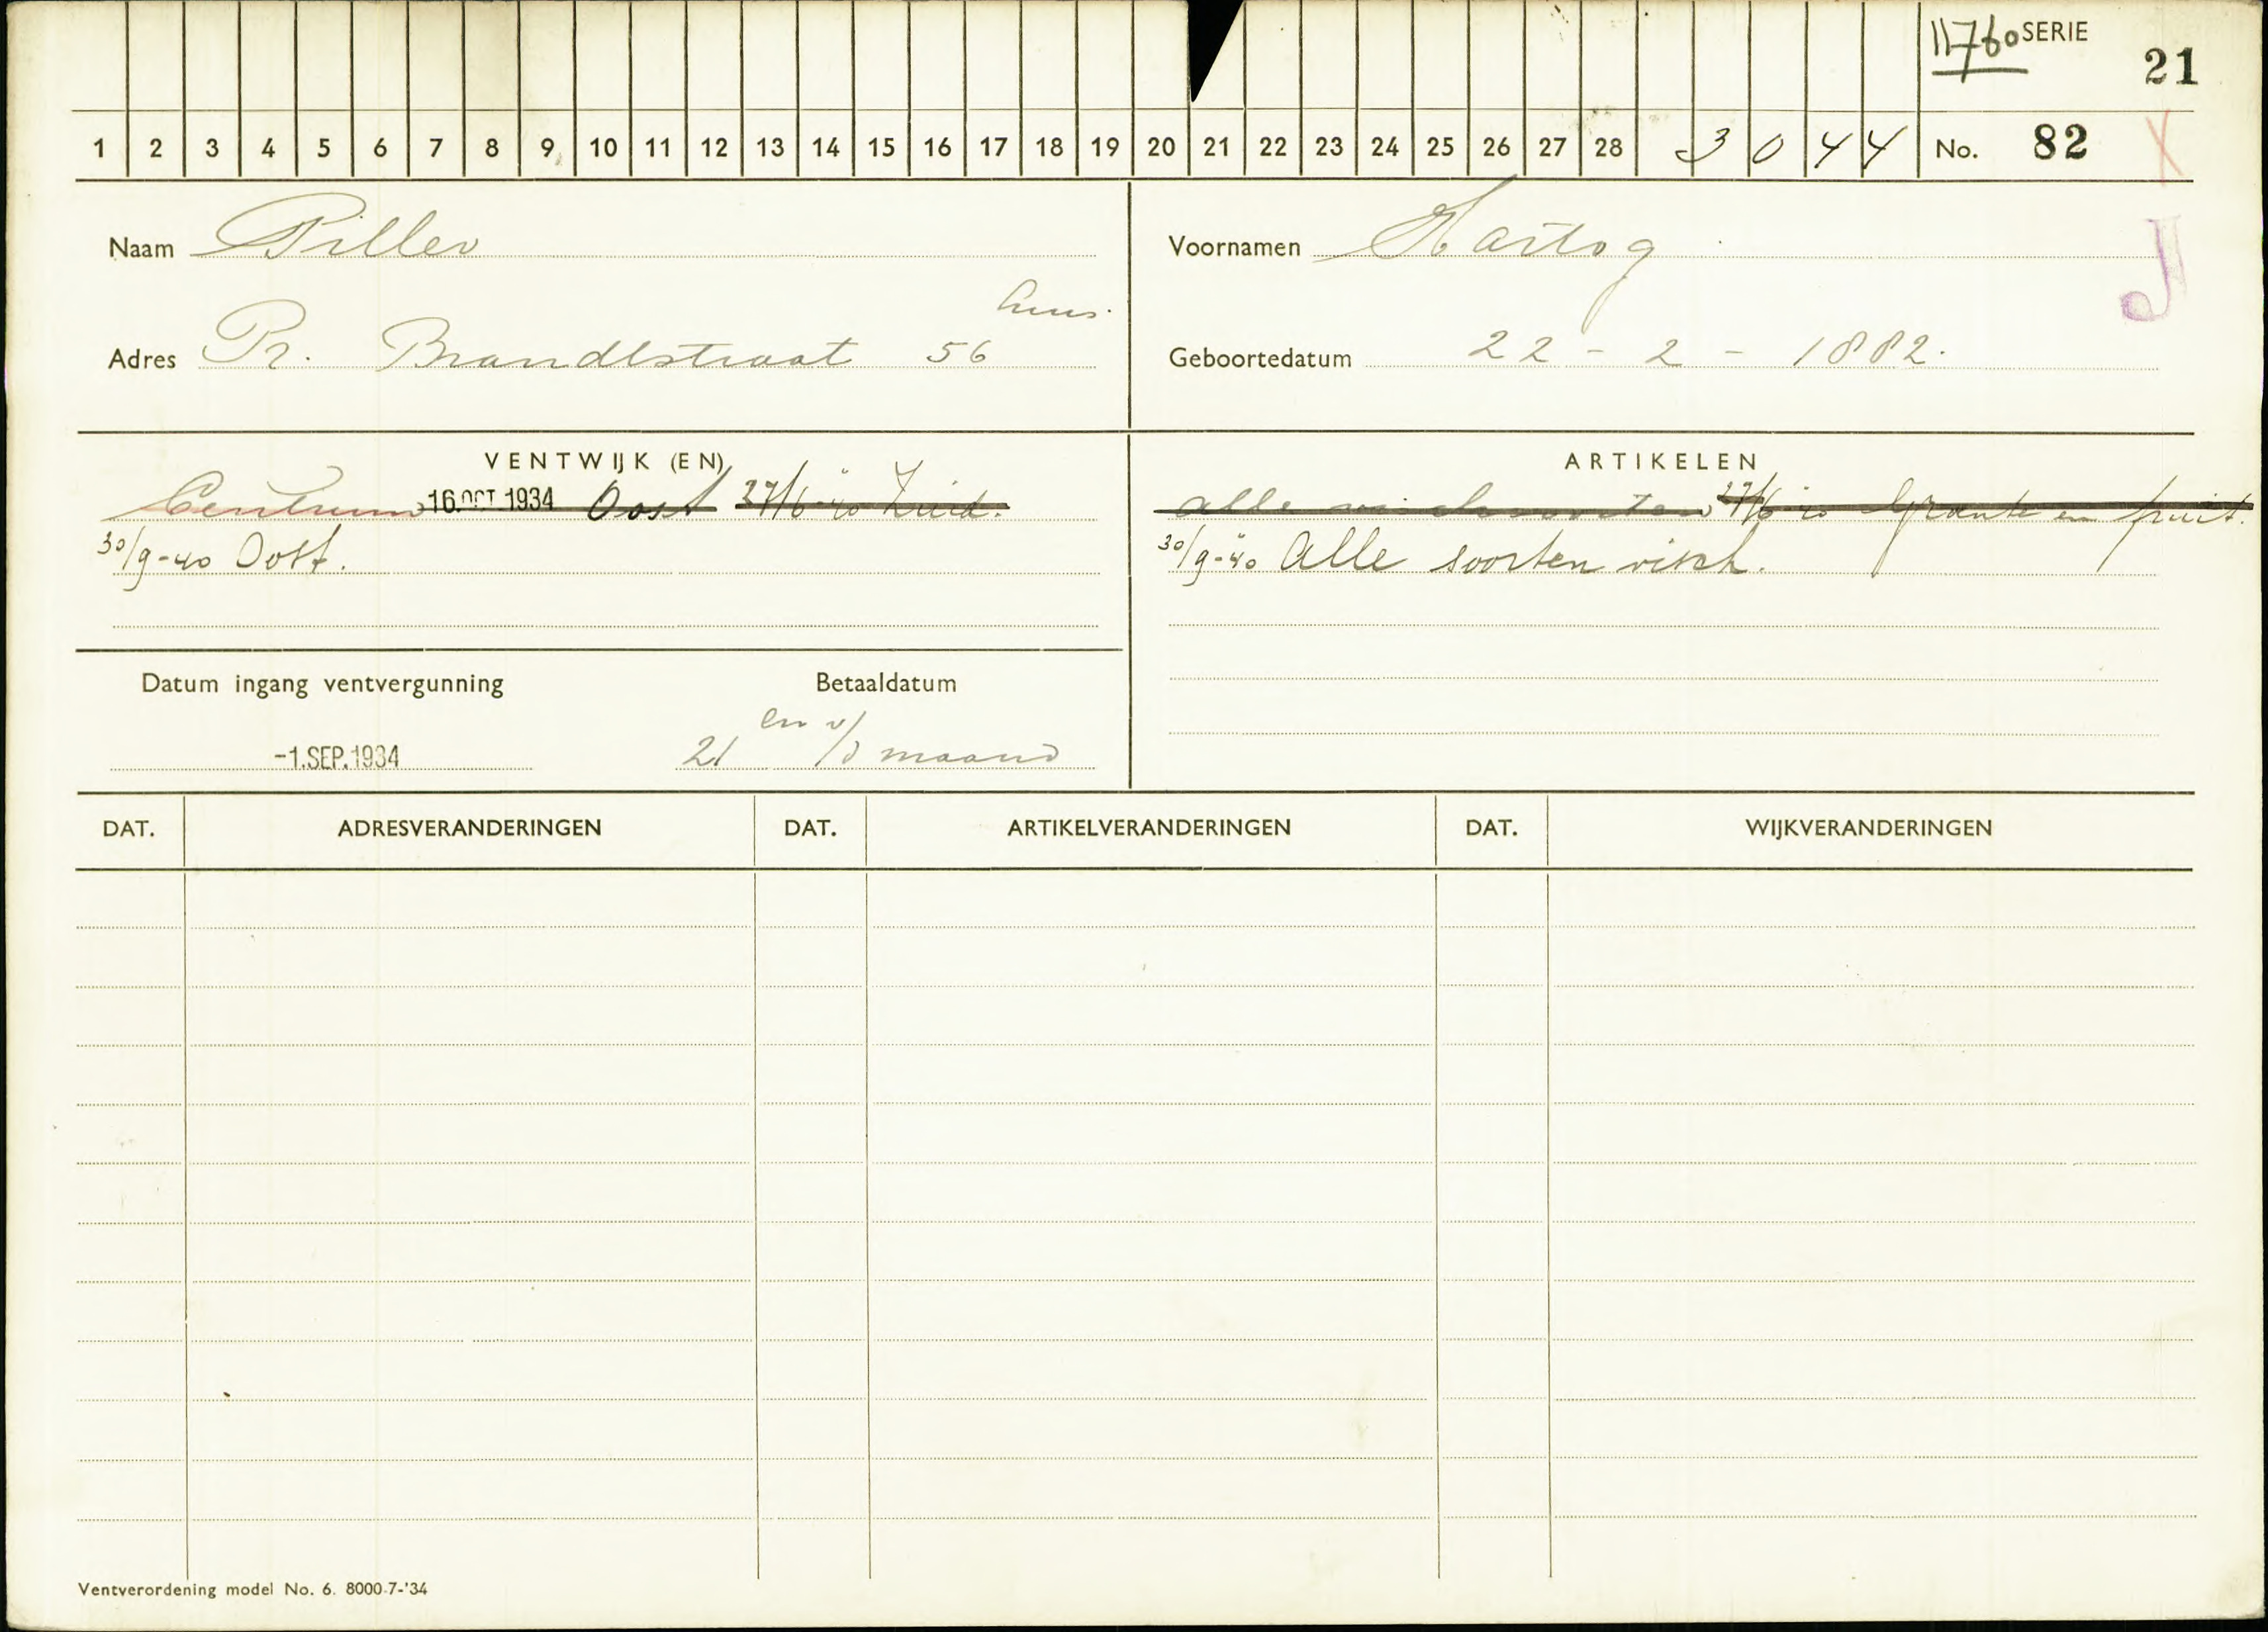 11760 SERIE 21
1 2 3 4 5 6 7 8 9 10 11 12 13 14 15 16 17 18 19 20 21 22 23 24 25 26 27 28 3 0 4 4 No. 82 X
Naam Piller
Voornamen Hartog
J
huis.
Adres Pr. Brandtstraat 56
Geboortedatum 22 - 2 - 1882.
VENTWIJK (EN)
Centrum 16 OCT 1934 Oost 27/6-'40 Zuid.
30/9-40 Oost.
ARTIKELEN
alle vischsoorten 27/6 '40 Groente en fruit.
30/9-'40 Alle soorten visch.
Datum ingang ventvergunning Betaaldatum
-1.SEP.1934 21en v/d maand
DAT. ADRESVERANDERINGEN DAT. ARTIKELVERANDERINGEN DAT. WIJKVERANDERINGEN
Ventverordening model No. 6. 8000-7-'34